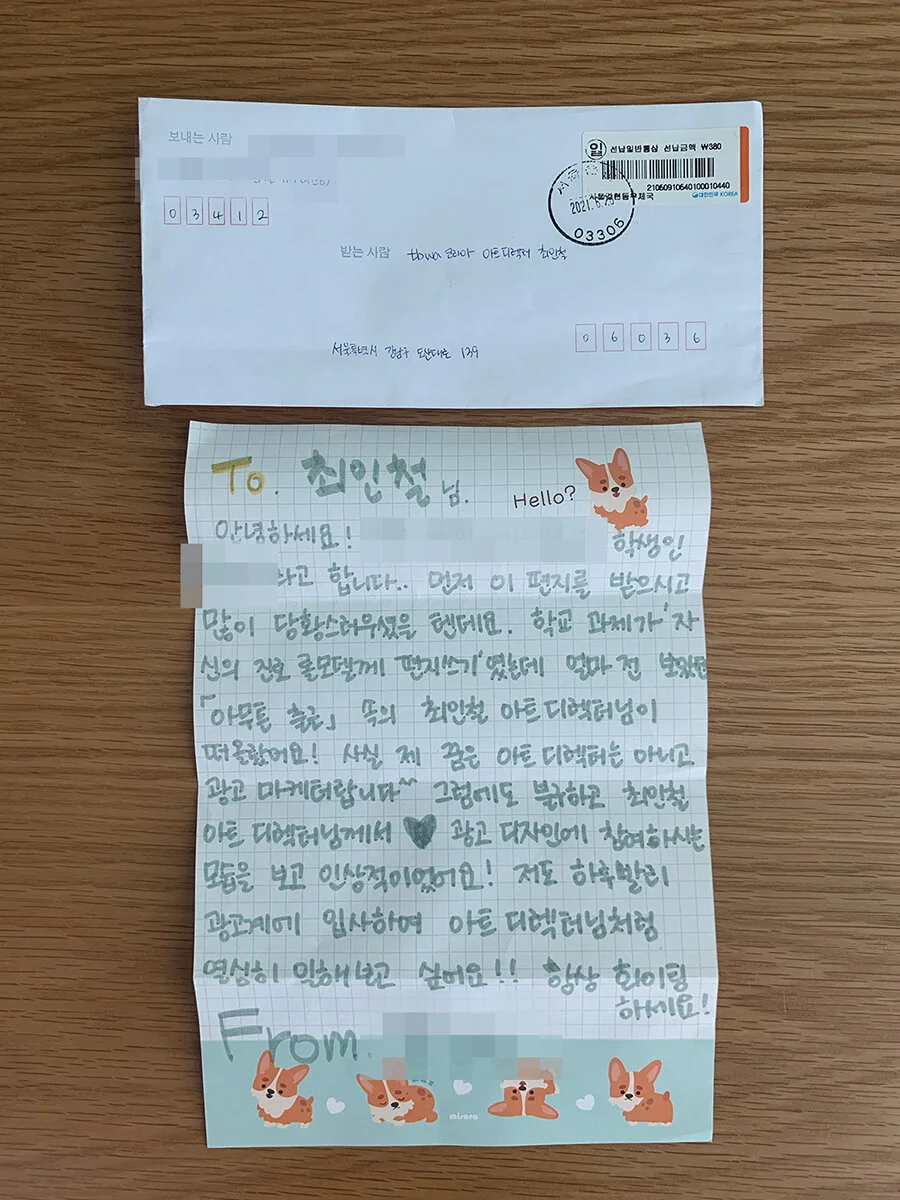 보내는 사람
03412
일 선납일반통상 선납금액 ₩380
2106091064010001044​0
서울갈현동우체국
대한민국 KOREA
2021. 6.
03306
받는 사람 tbwa 코리아 아트디렉터 최인철
서울특별시 강남구 도산대로 139
06036
To. 최인철 님.
Hello?
안녕하세요! 학생인
라고 합니다.. 먼저 이 편지를 받으시고
많이 당황스러우셨을 텐데요. 학교 과제가 '자
신의 진로 롤모델께 편지쓰기'였는데 얼마 전 보았던
「아무튼 출근」 속의 최인철 아트디렉터님이
떠올랐어요! 사실 제 꿈은 아트디렉터는 아니고
광고 마케터랍니다^^ 그럼에도 불구하고 최인철
아트 디렉터님께서 ♥ 광고 디자인에 참여하시는
모습을 보고 인상적이었어요! 저도 하루빨리
광고계에 입사하여 아트 디렉터님처럼
열심히 일해보고 싶어요!! 항상 화이팅
하세요!
From.
misoro